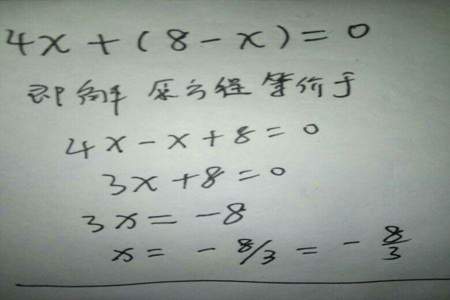 4x + (8 - x) = 0
即解 原方程等价于
4x - x + 8 = 0
3x + 8 = 0
3x = -8
x = - 8/3 = - 8/3